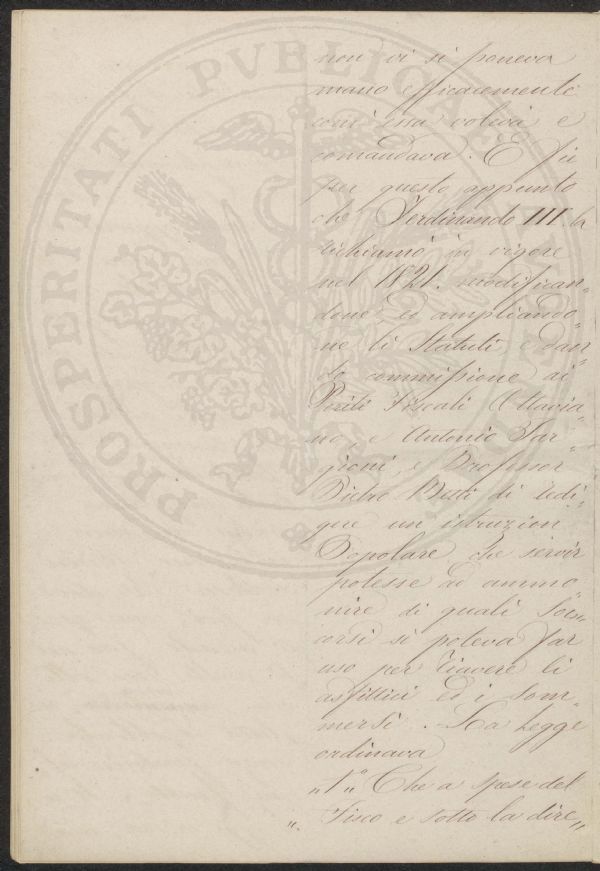 PROSPERITATI PVBLICAE
non vi si poneva
mano efficacemente
com' essa voleva e
comandava. E fu
per questo appunto
che Ferdinando III. la
richiamò in vigore
nel 1821. modifican„
done ed ampliando„
ne li Statuti, e dan„
do commissione ai
Periti Fiscali Ottavia„
no, e Antonio Tar„
gioni, e Professor
Pietro Betti di redi„
gere un istruzion
Popolare che servir
potesse ad ammo„
nire di quali Soc„
corsi si poteva far
uso per riavere li
asfittici ed i som„
mersi. La Legge
ordinava
„1.° Che a spese del
„ Fisco e sotto la dire„